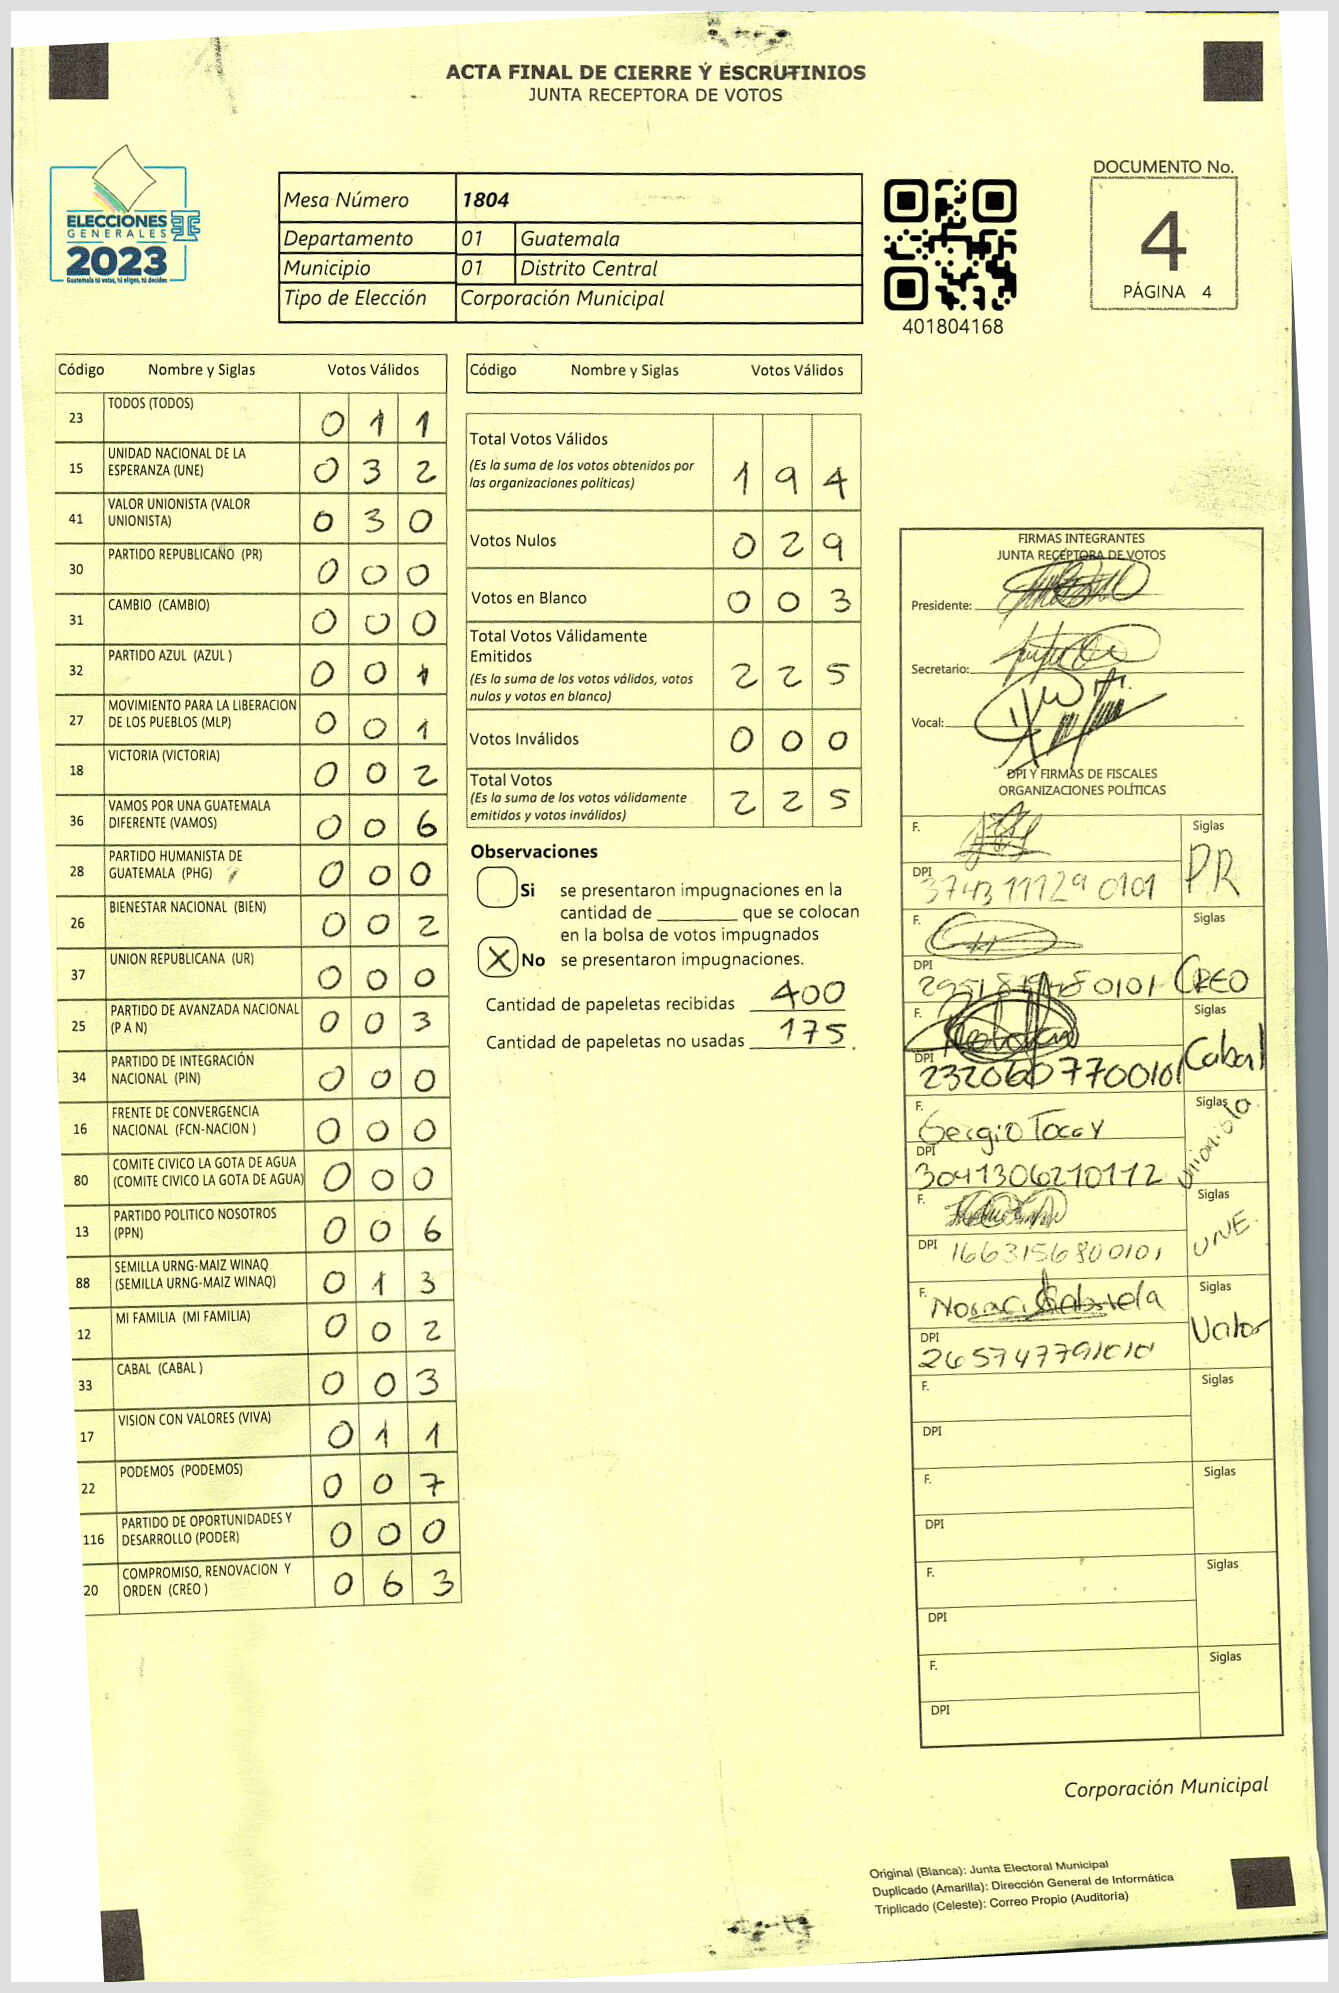 ACTA FINAL DE CIERRE Y ESCRUTINIOS
JUNTA RECEPTORA DE VOTOS
ELECCIONES
GENERALES
2023
Guatemala tú votas, tú eliges, tú decides
Mesa Número 1804
Departamento 01 Guatemala
Municipio 01 Distrito Central
Tipo de Elección Corporación Municipal
401804168
DOCUMENTO No.
4
PÁGINA 4
Código Nombre y Siglas Votos Válidos
23 TODOS (TODOS) 0 1 1
15 UNIDAD NACIONAL DE LA
ESPERANZA (UNE) 0 3 2
41 VALOR UNIONISTA (VALOR
UNIONISTA) 0 3 0
30 PARTIDO REPUBLICANO (PR) 0 0 0
31 CAMBIO (CAMBIO) 0 0 0
32 PARTIDO AZUL (AZUL ) 0 0 1
27 MOVIMIENTO PARA LA LIBERACION
DE LOS PUEBLOS (MLP) 0 0 1
18 VICTORIA (VICTORIA) 0 0 2
36 VAMOS POR UNA GUATEMALA
DIFERENTE (VAMOS) 0 0 6
28 PARTIDO HUMANISTA DE
GUATEMALA (PHG) 0 0 0
26 BIENESTAR NACIONAL (BIEN) 0 0 2
37 UNION REPUBLICANA (UR) 0 0 0
25 PARTIDO DE AVANZADA NACIONAL
(P A N) 0 0 3
34 PARTIDO DE INTEGRACIÓN
NACIONAL (PIN) 0 0 0
16 FRENTE DE CONVERGENCIA
NACIONAL (FCN-NACION ) 0 0 0
80 COMITE CIVICO LA GOTA DE AGUA
(COMITE CIVICO LA GOTA DE AGUA) 0 0 0
13 PARTIDO POLITICO NOSOTROS
(PPN) 0 0 6
88 SEMILLA URNG-MAIZ WINAQ
(SEMILLA URNG-MAIZ WINAQ) 0 1 3
12 MI FAMILIA (MI FAMILIA) 0 0 2
33 CABAL (CABAL ) 0 0 3
17 VISION CON VALORES (VIVA) 0 1 1
22 PODEMOS (PODEMOS) 0 0 7
116 PARTIDO DE OPORTUNIDADES Y
DESARROLLO (PODER) 0 0 0
20 COMPROMISO, RENOVACION Y
ORDEN (CREO ) 0 6 3
Código Nombre y Siglas Votos Válidos
Total Votos Válidos
(Es la suma de los votos obtenidos por
las organizaciones políticas) 1 9 4
Votos Nulos 0 2 9
Votos en Blanco 0 0 3
Total Votos Válidamente
Emitidos
(Es la suma de los votos válidos, votos
nulos y votos en blanco) 2 2 5
Votos Inválidos 0 0 0
Total Votos
(Es la suma de los votos válidamente
emitidos y votos inválidos) 2 2 5
Observaciones
Si se presentaron impugnaciones en la
cantidad de ________ que se colocan
en la bolsa de votos impugnados
X No se presentaron impugnaciones.
Cantidad de papeletas recibidas 400
Cantidad de papeletas no usadas 175.
FIRMAS INTEGRANTES
JUNTA RECEPTORA DE VOTOS
Presidente:
Secretario:
Vocal:
DPI Y FIRMAS DE FISCALES
ORGANIZACIONES POLÍTICAS
F. Siglas
DPI PR
F. Siglas
DPI CREO
F. Siglas
DPI Cabal
F. Sergio Tocay Siglas
DPI 3041306210112 Unionista
F. Siglas
DPI 1663156800101 UNE
F. Gabriela Siglas
DPI Valor
F. Siglas
DPI
F. Siglas
DPI
F. Siglas
DPI
F. Siglas
DPI
Corporación Municipal
Original (Blanca): Junta Electoral Municipal
Duplicado (Amarilla): Dirección General de Informática
Triplicado (Celeste): Correo Propio (Auditoria)